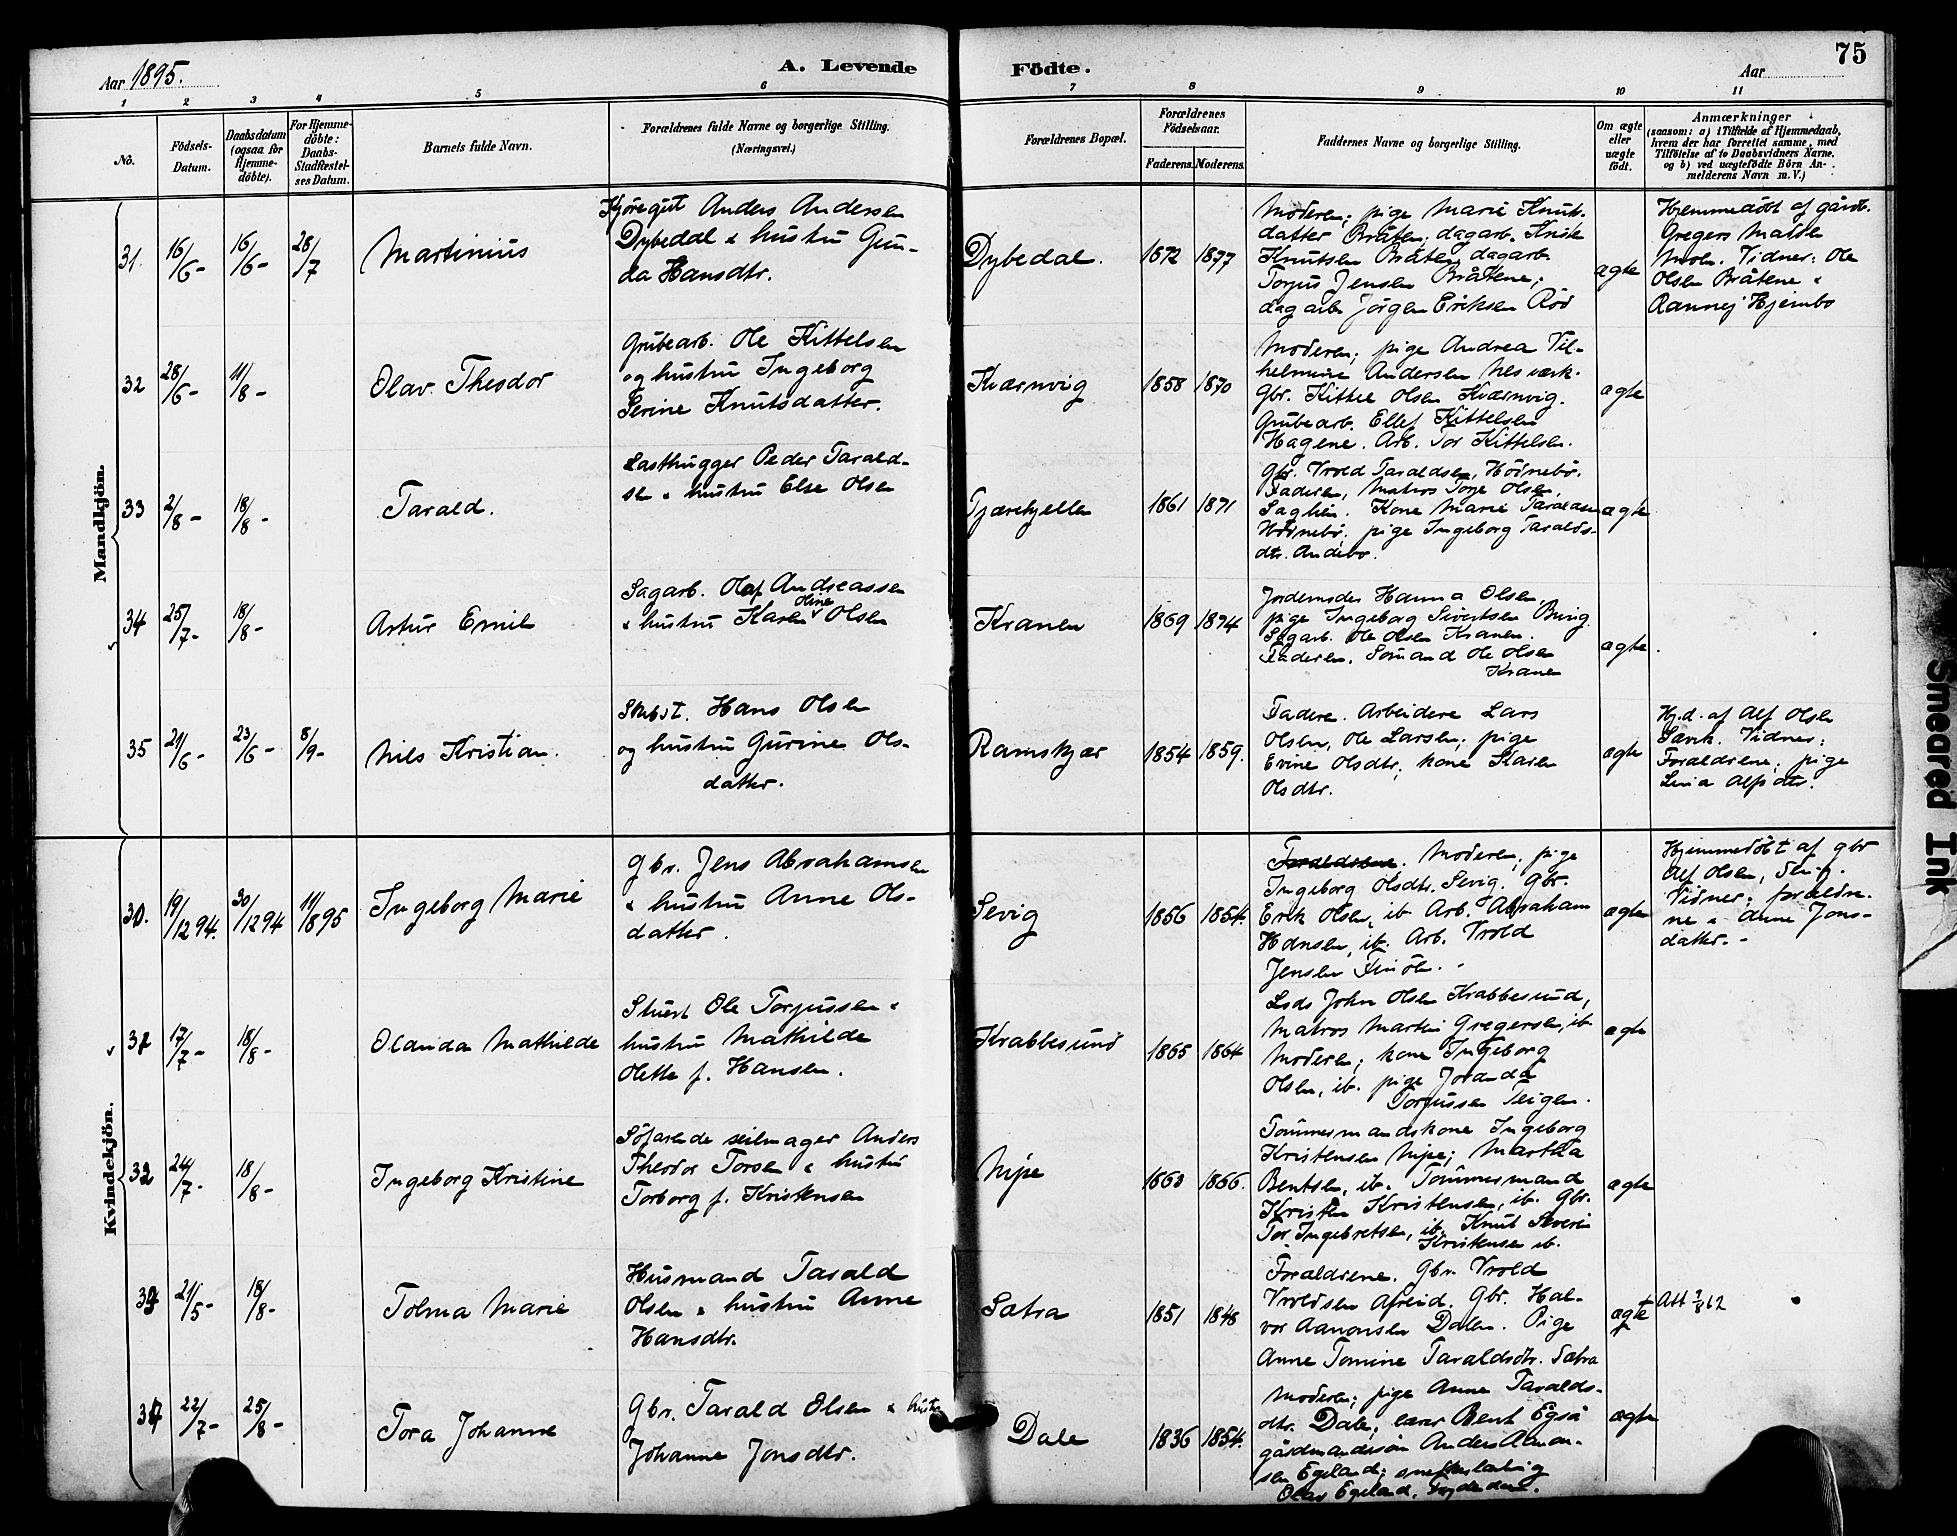 Aar 1895.
A. Levende Födte.
Aar
75
1 2 3 4 5 6 7 8 9 10 11
No.
Födsels-Datum.
Daabsdatum (ogsaa for Hjemme-döbte).
For Hjemme-döbte: Daabs-Stadfæstel-ses Datum.
Barnets fulde Navn.
Forældrenes fulde Navne og borgerlige Stilling.
(Næringsvei.)
Forældrenes Bopæl.
Forældrenes Födselsaar.
Faderens. Moderens.
Faddernes Navne og borgerlige Stilling.
Om ægte eller uægte födt.
Anmærkninger
(saasom: a) i Tilfælde af Hjemmedaab,
hvem der har forrettet samme, med
Tilföielse af to Daabsvidners Navne,
og b) ved uægtefödte Börn An-
melderens Navn m. V.)
Mandkjön.
31. 16/6- 16/6- 28/7
Martinius
Kjøregut Anders Andersen
Dybedal & hustru Gun-
da Hansdtr.
Dybedal.
1872 1877
Moderen; pige Marie Knuts-
datter Bråten; dagarb.
Knutsen Bråten, dagarb.
Torjus Jensen Bråtene;
dagarb Jörgen Eriksen Röd
ægte
Hjemmedöbt af gårdb.
Gregers
Vidner: Ole
Olsen Bråtene &
Hjembo
32 28/6- 11/8-
Olav Theodor
Grubearb. Ole Kittelsen
og hustru Ingeborg
Serine Knutsdatter.
Kværnvig
1858 1870
Moderen; pige Andrea Vil-
helmine Andersen Nesværk.
Gbr. Kittel Olsen Kværnvig.
Grubearb. Ellef Kittelsen
Hagene. Arb. Tor Kittelsen.
ægte
33 2/8- 18/8-
Tarald.
Lasthugger Peder Tarald-
sen & hustru Else Olsen
Tjærehjellen
1861 1871
Gbr. Vrold Taraldsen, Hödnebö.
Faderen, Matros Torje Olsen,
Saghei. Kone Marie Taraldsen
Hödnebö; pige Ingeborg Taralds-
dtr. Andebo.
ægte
34 25/7- 18/8-
Artur Emil
Sagarb. Olaf Andreassen
& hustru Karen Oline Olsen
Kranen
1869 1874
Jordemoder Hanna Olsen,
pige Ingeborg Sivertsen
Sagarb. Ole Olsen Kranen.
Faderen. Sömand Ole Olsen
Kranen
ægte
35 21/6- 23/6- 8/9-
Nils Kristian.
Skibst. Hans Olsen
og hustru Gurine Ols-
datter.
Ramskjær
1854 1859.
Fadere. Arbeidere Lars
Olsen, Ole Larsen; pige
Evine Olsdtr; kone Karen
Olsdtr.
ægte
Hj.d. af Alf Olsen
Sævik. Vidner:
Forældrene; pige
Lina Alfsdtr.
Kvindekjön.
30. 19/12 94. 30/12 94 11/8 95
Ingeborg Marie
Gbr. Jens Abrahamsen
& hustru Anne Ols-
datter.
Sevig
1856 1854.
Forældrene. Moderen; pige
Ingeborg Olsdtr. Sevig. Gbr.
Erik Olsen, ib. Arb. Abraham
Hansen, ib. Arb. Vrold
Jensen Finöen.
ægte
Hjemmedöbt af gbr
Alf Olsen, Sevig.
Vidner: foreldre-
ne & Anne Jons-
datter.-
31 17/7- 18/8-
Olanda Mathilde
Stuert Ole Torjussen &
hustru Mathilde
Olette f. Hansen.
Krabbesund
1865 1864
Lods John Olsen Krabbesund,
Matros Martin Gregersen, ib.
Moderen; kone Ingeborg
Olsen, ib. pige Joranda
Torjussen Teigen.
ægte
32 24/7- 18/8-
Ingeborg Kristine
Söfarende seilmager Anders
Theodor Torsen & hustru
Torborg f. Kristensen
Nipe
1863 1866.
Tömmermandskone Ingeborg
Kristensen Nipe; Martha
Bentsen, ib. Tömmermand
Kristen Kristensen, ib. Gbr.
Tor Ingebretsen, ib. Knut Severin
Kristensen ib.
ægte
33 21/5- 18/8-
Tolma Marie
Husmand Tarald
Olsen & hustru Anne
Hansdtr.
Satra
1851 1848
Forældrene. Gbr. Vrold
Vroldsen Afreid. Gbr. Hal-
vor Aanonsen Dalen. Pige
Anne Tomine Taraldsdtr. Satra
ægte
Att
34 22/7- 25/8-
Tora Johanne
Gbr. Tarald Olsen & hustru
Johanne Jonsdtr.
Dale
1836 1854.
Moderen; pige Anne Taralds-
dtr. Dale; lærer Bent Egså
gårdmandssön Anders Aanon-
sen Egeland;
Olav Egeland,
ægte
Smeared Ink